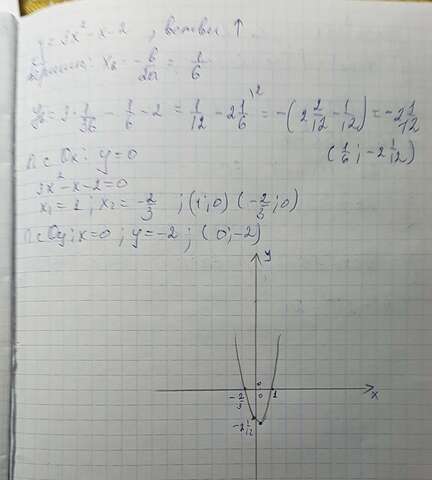 y = 3x² - x - 2 ; ветви ↑.
вершина: x₆ = -b/2a = 1/6
y₆ = 3 · 1/36 - 1/6 - 2 = 1/12 - 2 1/6 ^2 = -(2 2/12 - 1/12) = -2 1/12
(1/6 ; -2 1/12)
П с Ox: y = 0
3x² - x - 2 = 0
x₁ = 1 ; x₂ = -2/3 ; (1; 0) (-2/3 ; 0)
П с Oy: x = 0 ; y = -2 ; (0; -2)
y
0
-2/3 0 1 x
-2 1/12